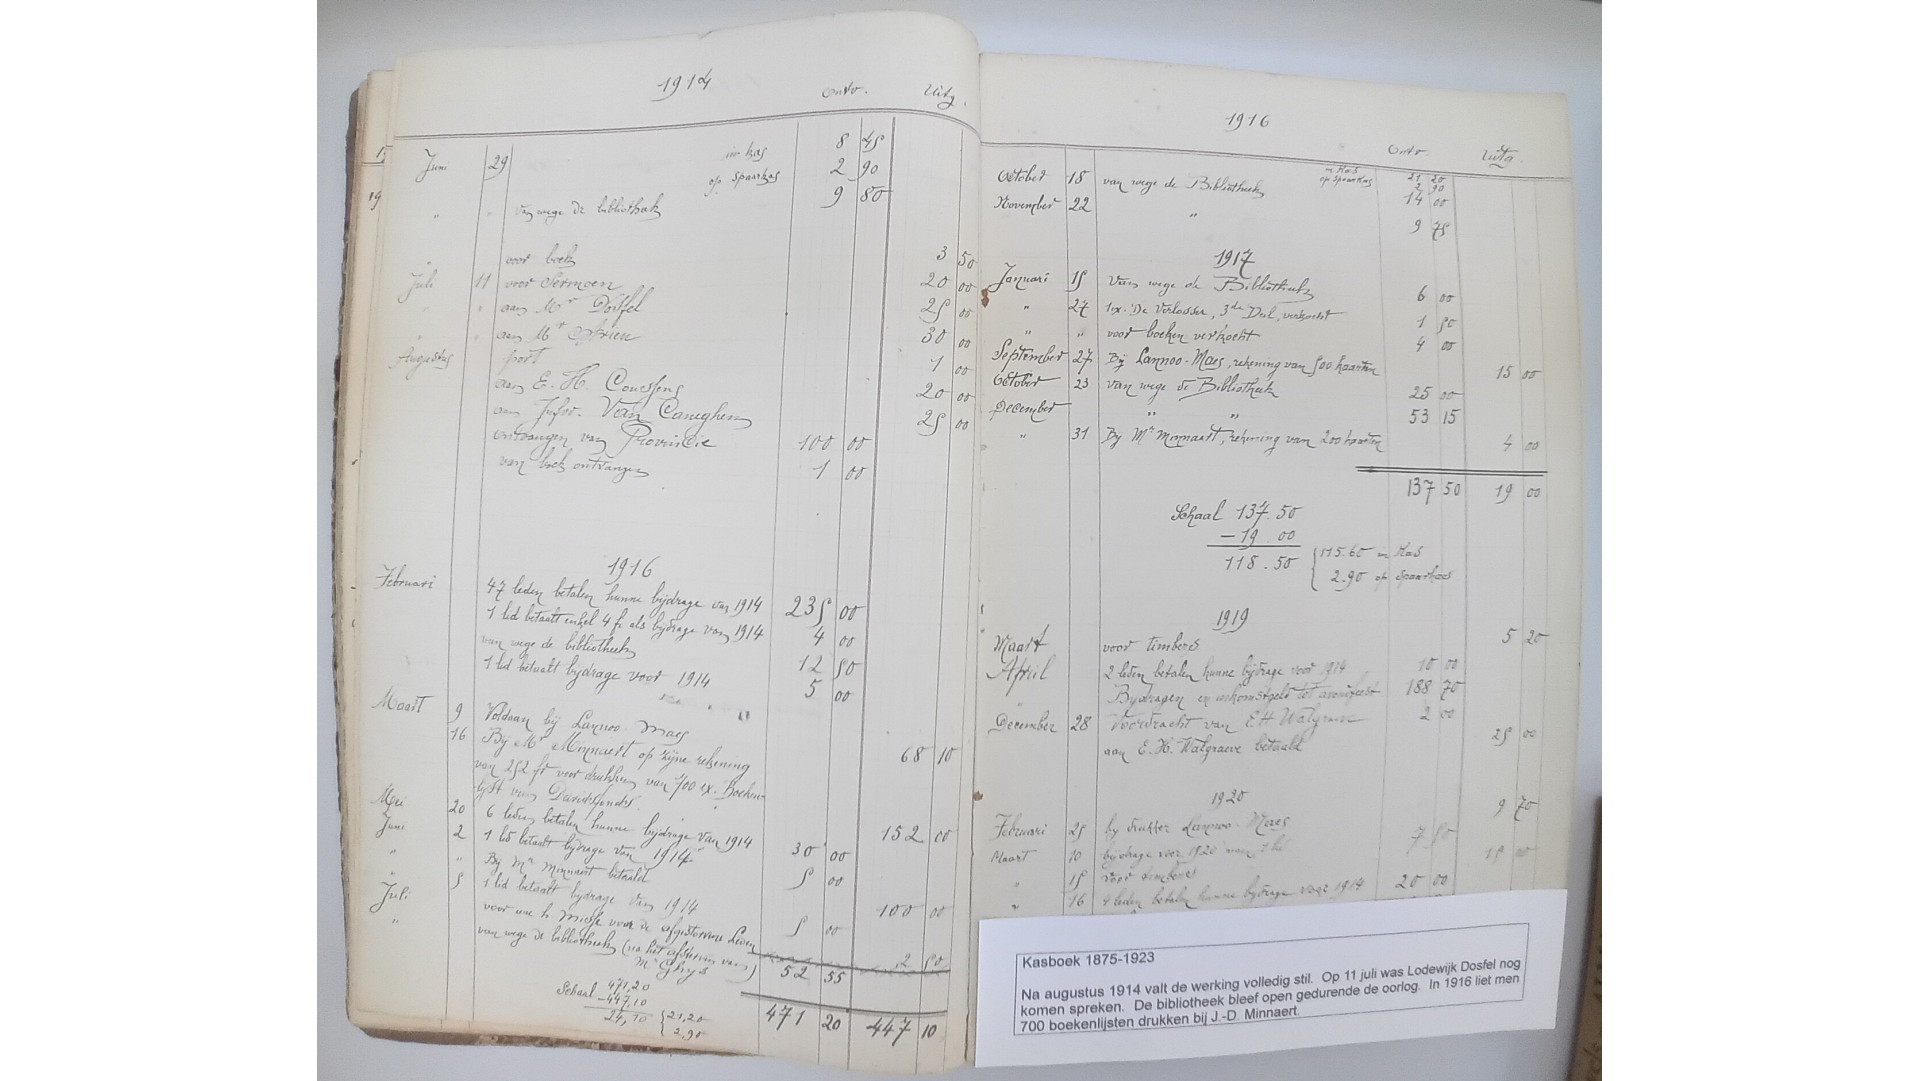 1914
Ontv. Uitg.
Juni 29 in kas 8 45
op spaarkas 2 90
" " van wege de bibliotheek 9 80
" voor boek 3 50
Juli 11 voor Sermoen 20 00
" " aan Mr Dosfel 25 00
" " aan Mr 30 00
Augustus port 1 00
aan E. H. Coussens 20 00
aan Jufvr. Van Caneghem 25 00
ontvangen van Provincie 100 00
van boek ontvangen 1 00
1916
Februari 47 leden betalen hunne bijdrage van 1914 235 00
1 lid betaalt enkel 4 fr als bijdrage van 1914 4 00
van wege de bibliotheek 12 50
1 lid betaalt bijdrage voor 1914 5 00
Maart 9 Voldaan bij Lannoo-Maes 68 10
16 Bij Mr Minnaert op zijne rekening
van 252 fr voor drukken van 700 ex. Boeken-
lijst van Davidsfonds. 152 00
Mei 20 6 leden betalen hunne bijdrage van 1914 30 00
Juni 2 1 lid betaalt bijdrage van 1914 5 00
" " Bij Mr Minnaert betaald 100 00
Juli 5 1 lid betaalt bijdrage van 1914 5 00
" voor eene h. Misse voor de afgestorvene Leden 2 50
van wege de bibliotheek (na het afsterven van 52 35
Mr Ghijs)
471 20 447 10
471,20
Schaal -447,10
24,10 { 21,20
2,90
1916
Ontv. Uitg.
in Kas 21 20
op spaarkas 2 90
October 18 van wege de Bibliotheek 14 00
November 22 " 9 75
1917
Januari 15 Van wege de Bibliotheek 6 00
" 27 1 ex. De Verlosser, 3de Deel, verkocht 1 50
" " voor boeken verkocht 4 00
September 27 Bij Lannoo-Maes, rekening van 500 kaarten 15 00
October 23 van wege de Bibliotheek 25 00
December " " 53 15
" 31 Bij Mr Minnaert, rekening van 200 kaarten 4 00
137 50 19 00
Schaal 137.50
-19.00
118.50 { 115.60 in Kas
2.90 op spaarkas
1919
Maart voor timbers 5 20
April 2 leden betalen hunne bijdrage voor 1914 10 00
Bijdragen en inkomstgeld tot avondfeest 188 70
December 28 Voordracht van E.H. Walgrave 2 00
aan E. H. Walgraeve betaald 25 00
1920
Februari 25 bij drukker Lannoo-Maes 9 70
Maart 10 bijdrage voor 1920 van 1 lid 7 50
" 15 voor timbers 15 00
" 16 4 leden betalen hunne bijdrage voor 1914 20 00
Kasboek 1875-1923
Na augustus 1914 valt de werking volledig stil. Op 11 juli was Lodewijk Dosfel nog
komen spreken. De bibliotheek bleef open gedurende de oorlog. In 1916 liet men
700 boekenlijsten drukken bij J.-D. Minnaert.